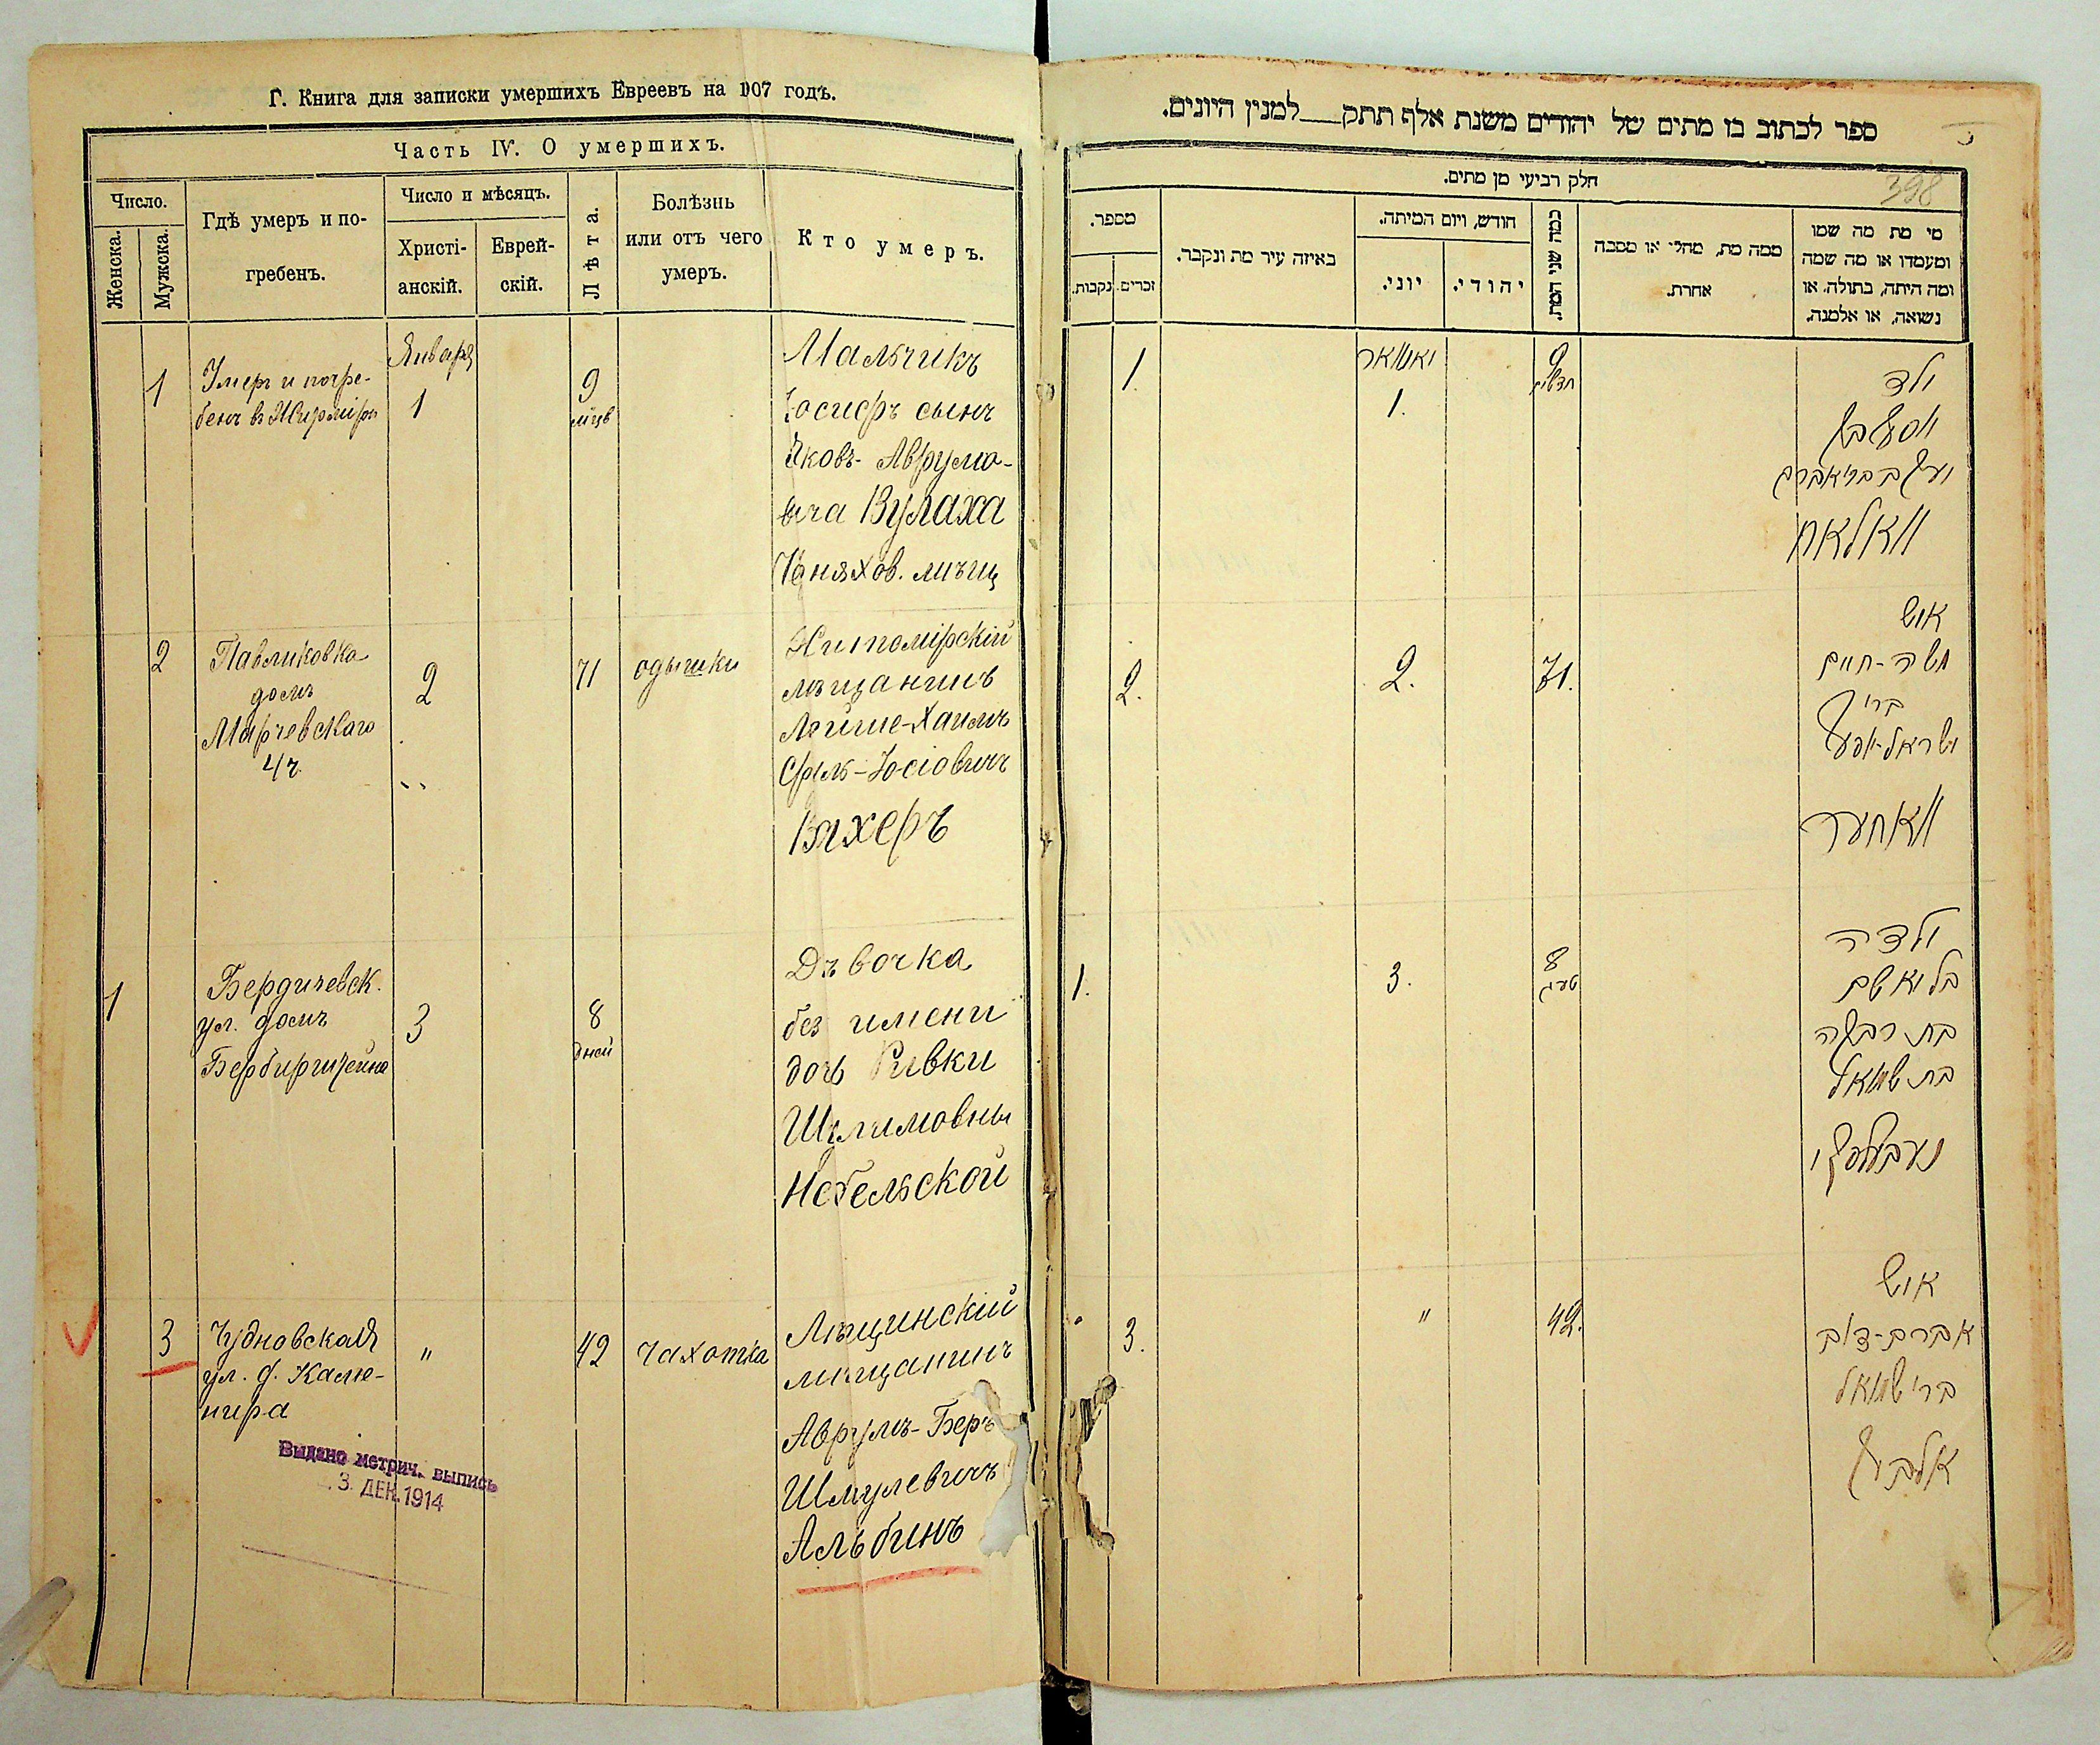 Г. Книга для записки умершихъ Евреевъ на 1907 годъ.
Часть IV. О умершихъ.
Число.
Женска.
Мужска.
Гдѣ умеръ и по-
гребенъ.
Число и мѣсяцъ.
Христі-
анскій.
Еврей-
скій.
Лѣта.
Болѣзнь
или отъ чего
умеръ.
Кто умеръ.
1
Умеръ и погре-
бенъ в Житомірѣ
Января
1
9
мцв
Мальчикъ
Іосифъ сынъ
Яковъ-Аврумо-
вича Вулаха
Черняхов. мѣщ
2
Павликовка
домъ
Марчевскаго
4 ч.
2
71
одышки
Житомірскій
мѣщанинъ
Мойше-Хаимъ
Сруль-Іосіовичъ
Вахеръ
1
Бердичевск.
ул. домъ
3
8
дней
Дѣвочка
без имени
дочь Ривки
Шулимовны
Небельской
3
Чудновская
ул. д.
"
42
чахотка
мѣщанинъ
Аврумъ-Беръ
Шмулевичъ
Альбинъ
Выдано метрич. выпись
3. ДЕК. 1914
ספר לכתוב בו מתים של יהודים משנת אלף תתק___למנין היונים.
398
חלק רביעי מן מתים.
מספר.
נקבות.
זכרים.
באיזה עיר מת ונקבר.
חודש, ויום המיתה.
יוני.
יהודי.
כמה שני המת.
ממה מת, מחלי או מסבה
אחרת.
מי מת מה שמו
ומעמדו או מה שמה
ומה היתה, בתולה, או
נשואה, או אלמנה.
1.
יאנואר
1.
9
חדשים
ילד
יאסעף בן
וואלאח
2.
2.
71.
איש
משה-חיים
ברי
ישראל-יוסף
וואחער
1.
3.
8
טעג
ילדה
בלי שם
בת רבקה
בת שמואל
נעבעלסקי
3.
"
42.
איש
אברם-דוב
בר׳ שמואל
אלבין